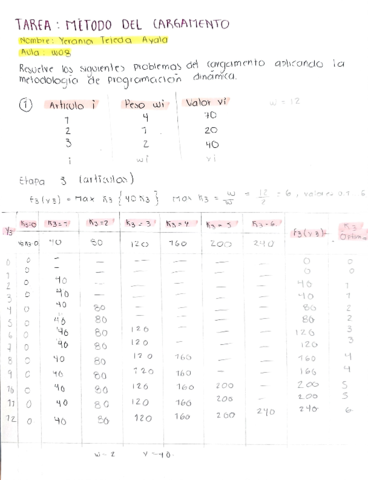 TAREA: MÉTODO DEL CARGAMENTO
Nombre: Yeronia Tejeda Ayala
Aula: W08
Resuelve los siguientes problemas del cargamento aplicando la
metodología de programación dinámica.
① Artículo i Peso wi Valor vi w = 12
1 4 70
2 1 20
3 2 40
i wi vi
Etapa 3 (artículos)
f3(y3) = max K3 {40 K3} Max K3 =
Y3 K3=0 K3=1 K3=2 K3=3 K3=4 K3=5 K3=6 f3(y3) K3
40 80 120 160 200 240
0 0 - - - - - - 0 0
1 0 - - - - - - 0 0
2 0 40 - - - - - 40 1
3 0 40 - - - - - 40 1
4 0 40 80 - - - - 80 2
5 0 40 80 - - - - 80 2
6 0 40 80 120 - - - 120 3
7 0 40 80 120 - - - 120 3
8 0 40 80 120 160 - - 160 4
9 0 40 80 120 160 - - 160 4
10 0 40 80 120 160 200 - 200 5
11 0 40 80 120 160 200 - 200 5
12 0 40 80 120 160 200 240 240 6
w=2 v=40